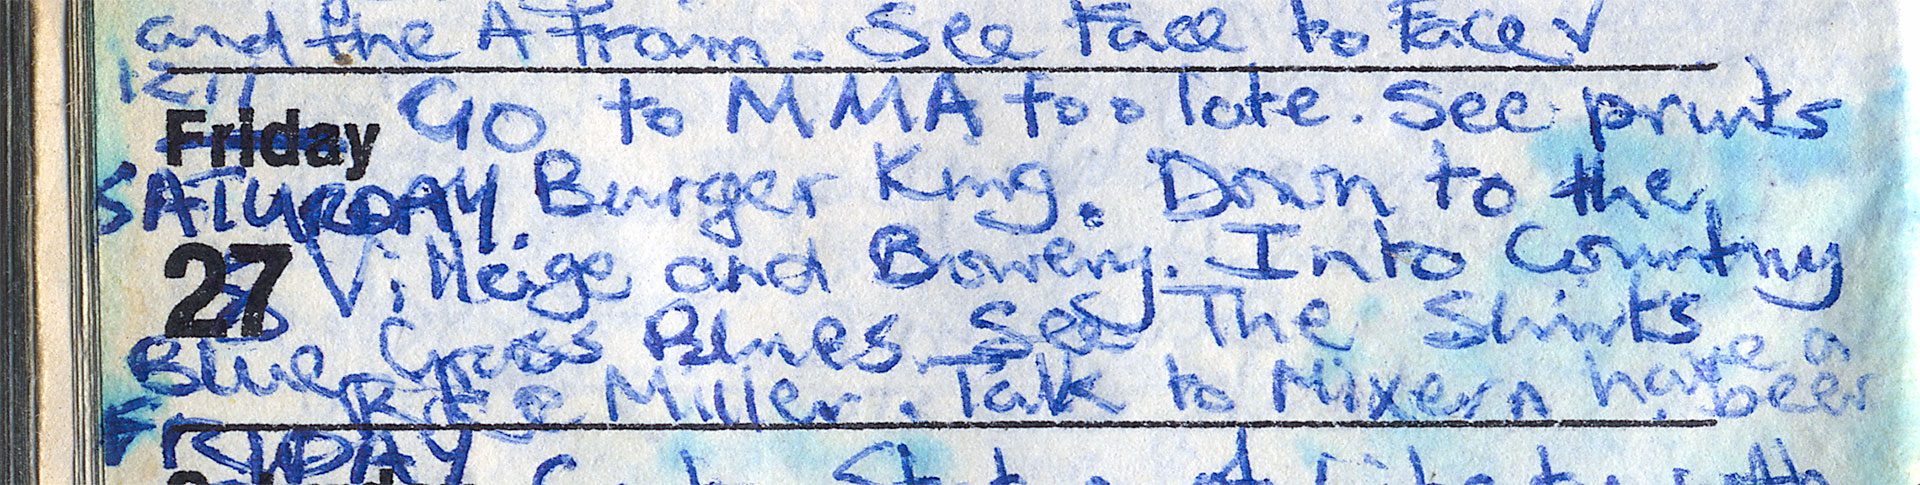 and the A Train. See Face to Face
1271
Friday Go to MMA too late. See prints
SATURDAY. Burger King. Down to the
27 Villeige and Bowery. Into Country
Blue Grass Blues. See The Shirts
Rose Miller. Talk to Mixer, have a beer
FRIDAY